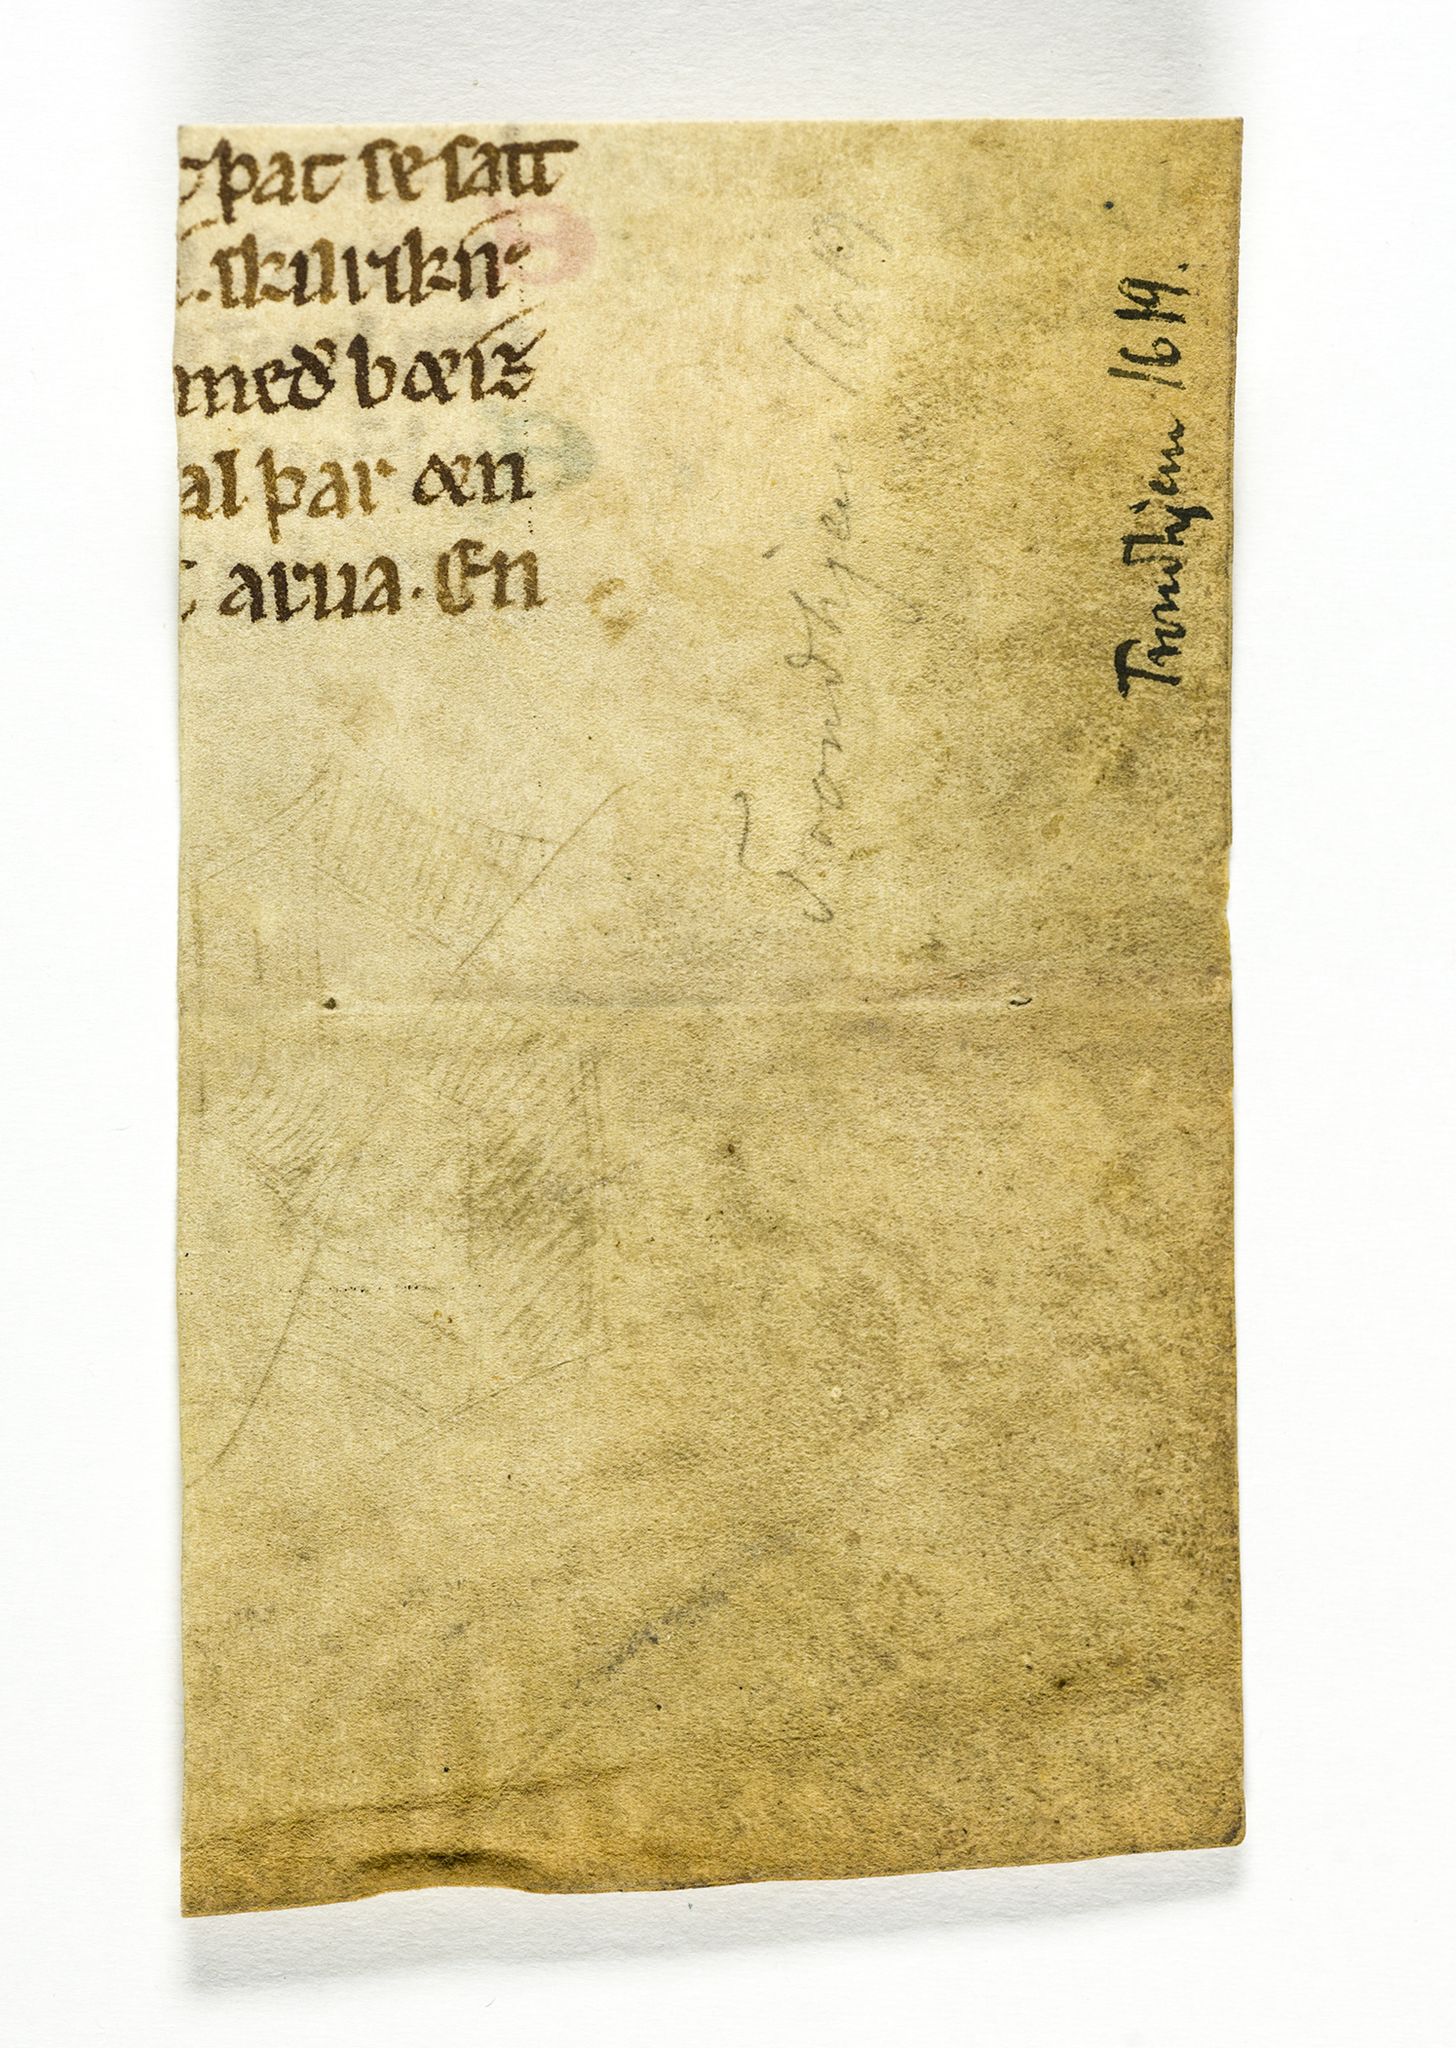 t þat se satt
. ſkurſkn
með bæiz
al þar æn
t arua. En
Trondhjem 1619
Trondhjem 1619.